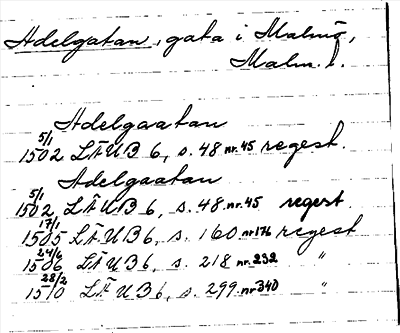 Adelgatan, gata i Malmö,
Malm. l.
Adelgaatan
5/1
1502 LÄUB 6, s. 48 nr. 45 regest.
Adelgaatan
5/1
1502 LÄUB 6, s. 48 nr. 45 regest.
17/1
1505 LÄUB 6, s. 160 nr 176 regest
24/6
1506 LÄUB 6, s. 218 nr. 232 "
28/2
1510 LÄUB 6, s. 299 nr 340 "